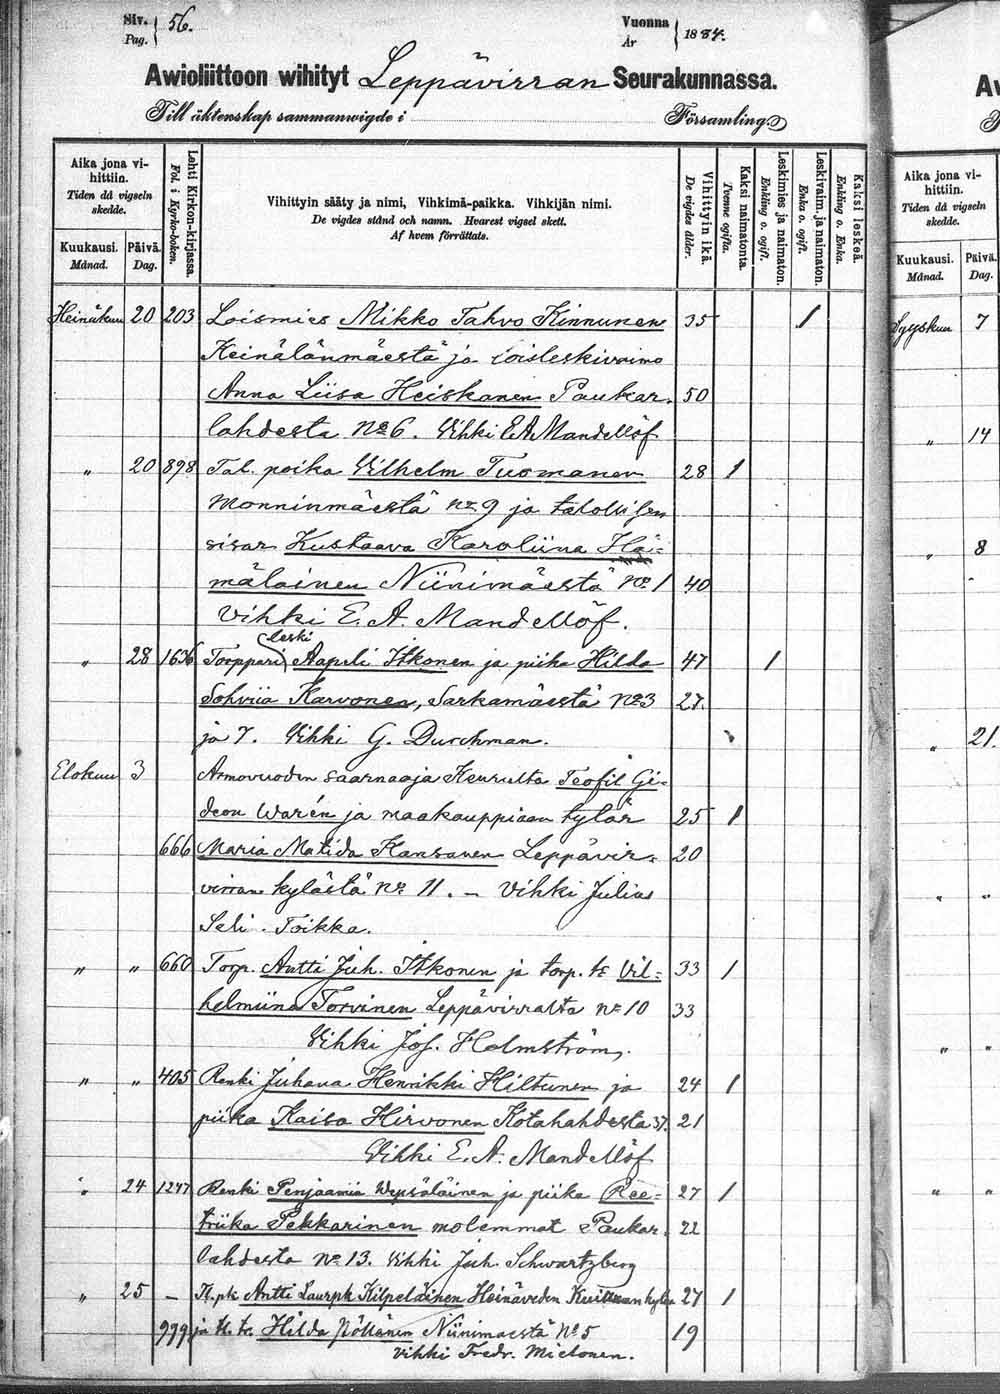 Siv. Pag. 56. Vuonna År 1884.
Awioliittoon wihityt Leppävirran Seurakunnassa.
Till äktenskap sammanwigde i Församling.
Aika jona vihittiin. Tiden då vigseln skedde.
Kuukausi. Månad. Päivä. Dag.
Lehti Kirkon-kirjassa. Fol. i Kyrko-boken.
Vihittyin sääty ja nimi, Vihkimä-paikka. Vihkijän nimi.
De vigdes stånd och namn. Hvarest vigsel skett.
Af hvem förrättats.
Vihittyin ikä. De vigdes ålder.
Kaksi naimatonta. Tvenne ogifta.
Leskimies ja naimaton. Enkling o. ogift.
Leskivaim. ja naimaton. Enka o. ogift.
Kaksi leskeä. Enkling o. Enka.
Heinäkuu 20 203 Loismies Mikko Tahvo Kinnunen 35 1
Keinälänmäestä ja loisleskivaimo
Anna Liisa Heiskanen Paukar- 50
lahdesta No 6. Vihki E.A. Mandellöf
" 20 898 Tal. poika Vilhelm Tuomanen 28 1
Monninmäestä no 9 ja talollisen
sisar Kustaava Karoliina Hä-
mäläinen Niinimäestä no 1 40
Vihki E. A. Mandellöf.
leski
" 28 1636 Torppari Aapeli Itkonen ja piika Hilda 47 1
Sohviia Karvonen, Sarkamäestä No 3 27.
ja 7. Vihki G. Durchman.
Elokuu 3 Armovuoden saarnaaja Keurulta Teofil Gi-
deon Warén ja maakauppiaan tytär 25 1
666 Maria Matida Kansanen Leppävir- 20
virran kylästä no 11. – Vihki Julius
Seli. Toikka.
" " 660 Torp. Antti Juh. Itkonen ja torp. tr Vil- 33 1
helmiina Torvinen Leppävirralta no 10 33
Vihki Jos. Holmström.
" " 405 Renki Juhana Henrikki Hiltunen ja 24 1
piika Kaisa Hirvonen Kotalahdesta 37. 21
Vihki E. A. Mandellöf
" 24 1247 Renki Penjaamia Weysäläinen ja piika Ree- 27 1
triika Pekkarinen molemmat Paukar- 22
lahdesta no 13. Vihki Juh. Schwartzberg
" 25 – Antti Laurpk Kilpeläinen Heinäveden 27 1
979 ja Hilda Pöllänen Niinimaestä No 5 19
Vihki Fredr. Mietonen.
Aika jona vihittiin. Tiden då vigseln skedde.
Kuukausi. Månad. Päivä. Dag.
Syyskuu 7
" 14
" 8
" 21.
" "
" "
" "